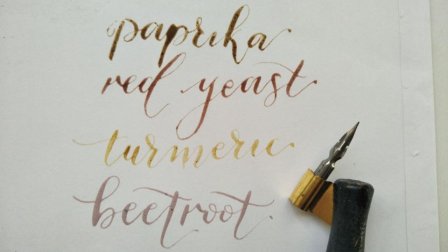 paprika
red yeast
turmeric
beetroot.